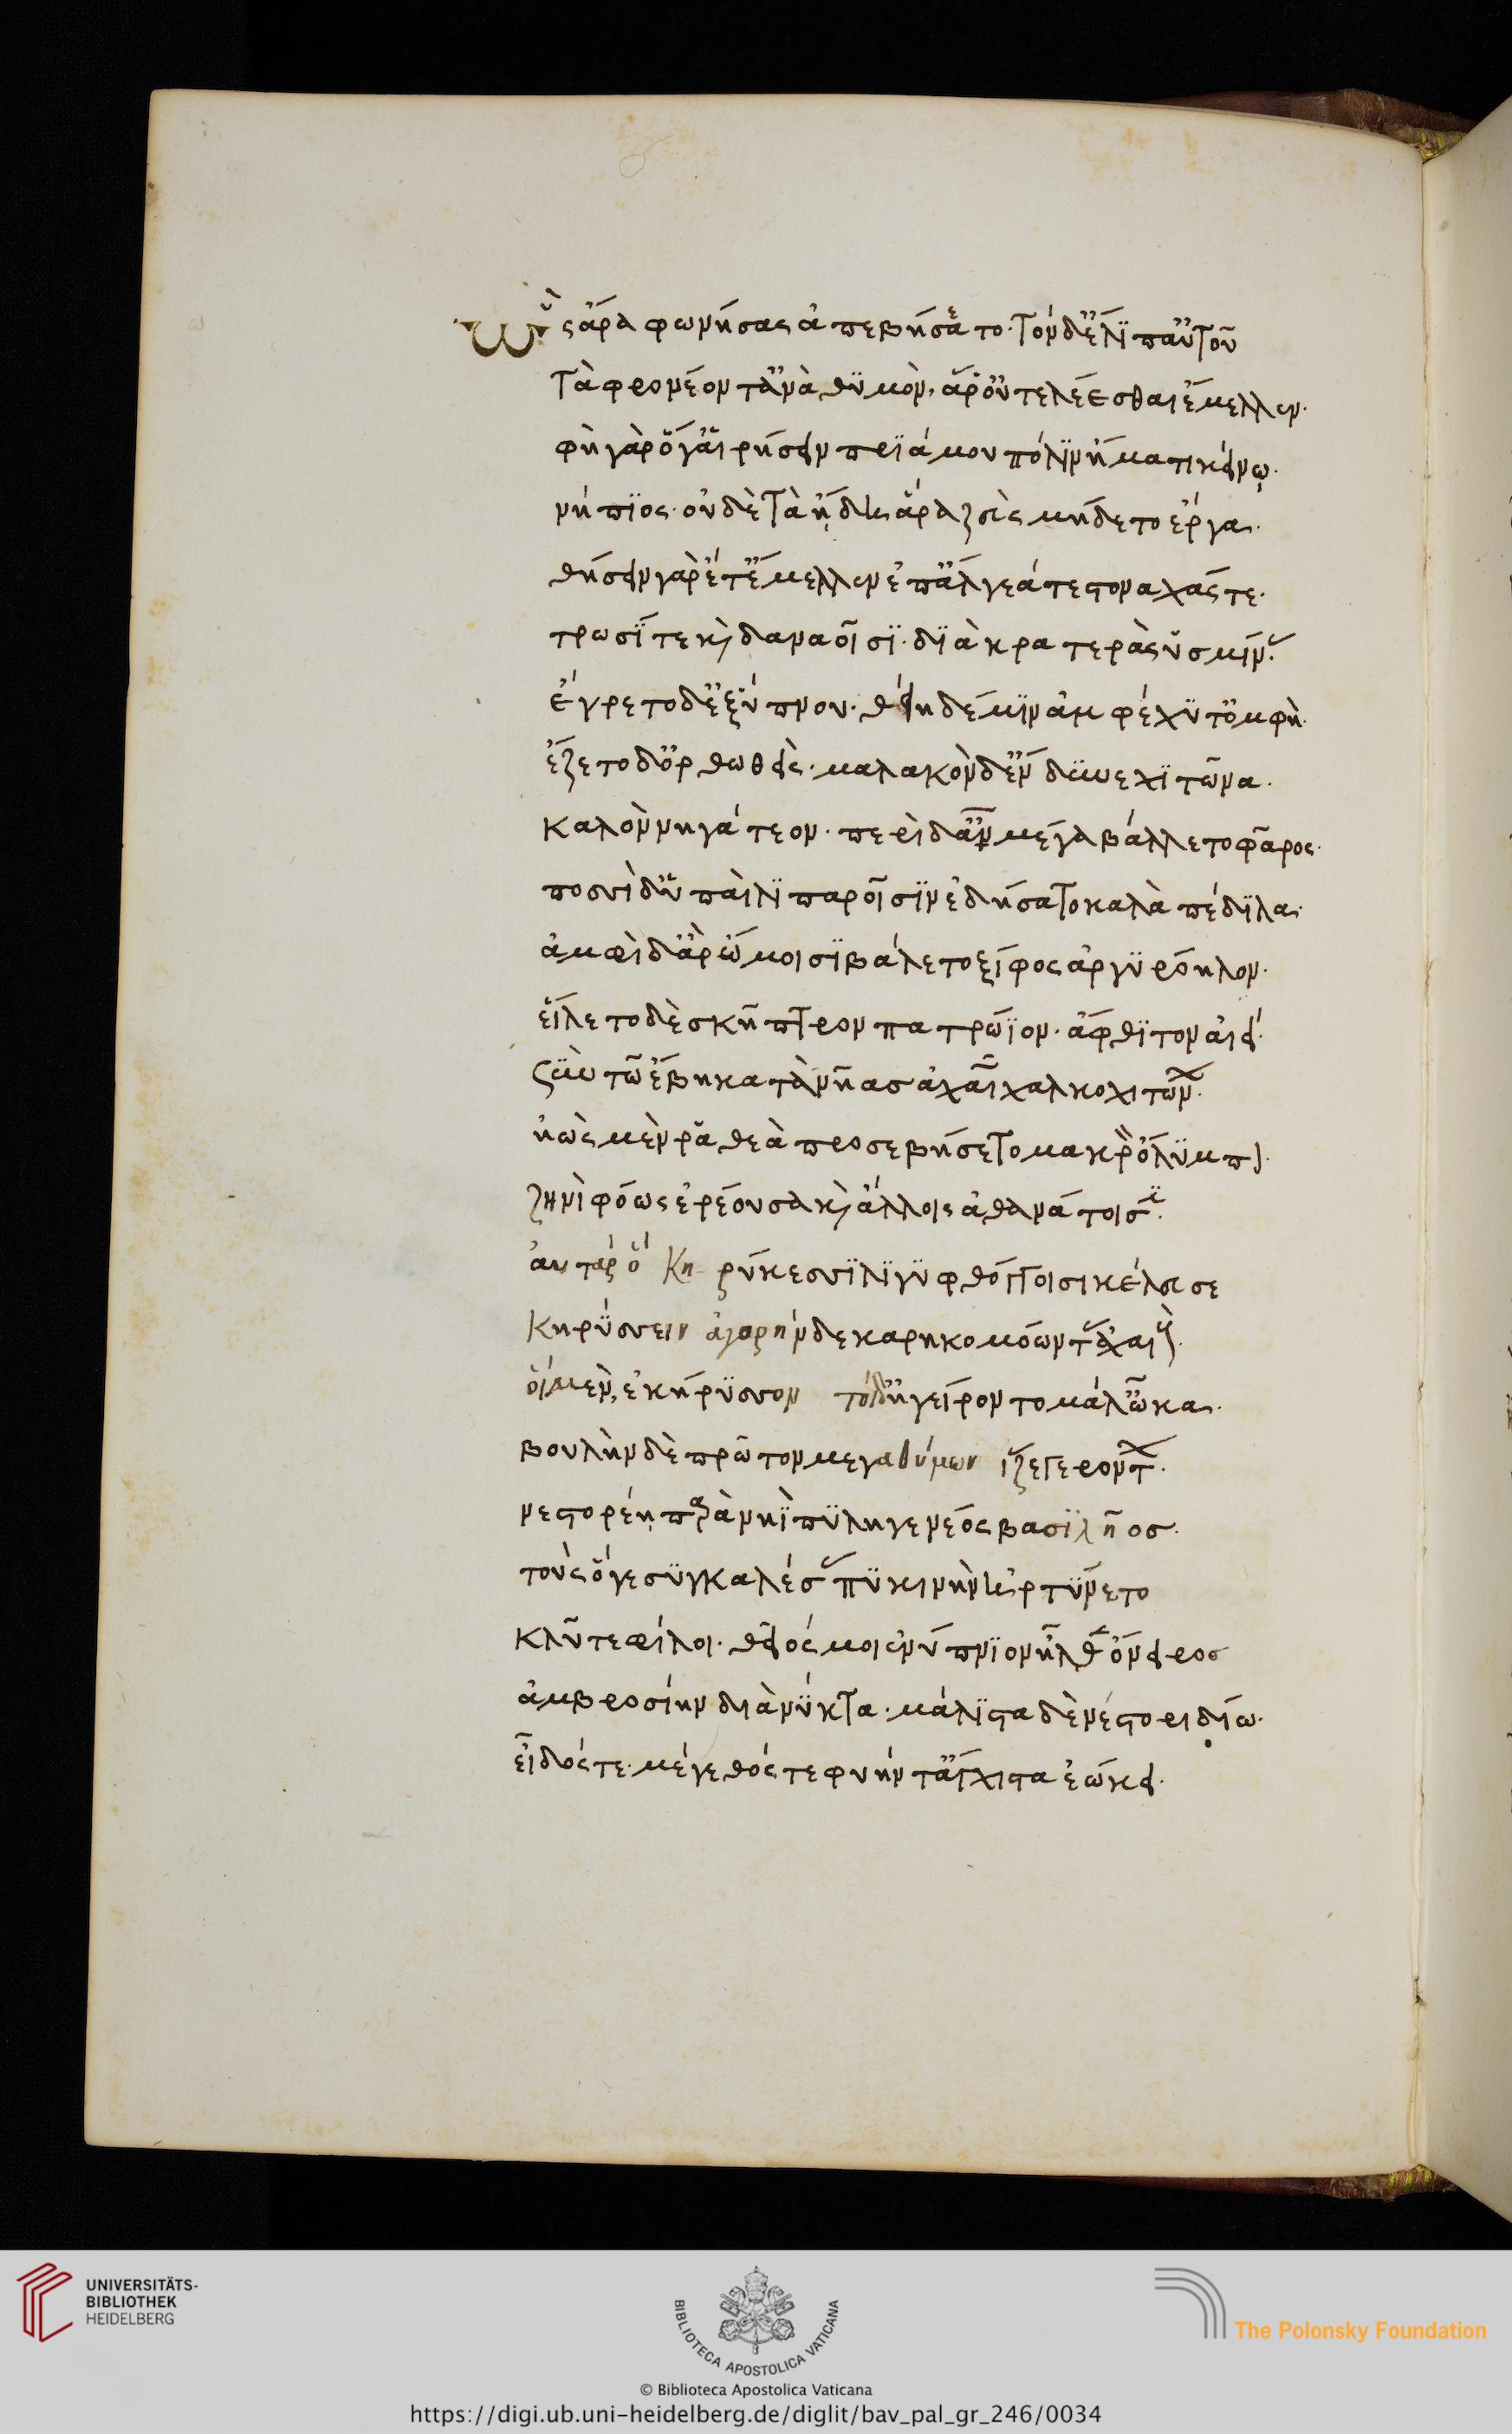 Ὣς ἄρα φωνήσας ἀπεβήσατο· τὸν δ' ἔλιπ' αὐτοῦ
τὰ φρονέοντ' ἀνὰ θϋμὸν, ἅρ' οὐ τελέεσθαι ἔμελλεν·
φῆ γὰρ ὅγ' αἱρήσειν πριάμου πόλϊν ἤματι κείνῳ·
νήπϊος· οὐδὲ τὰ ᾔδη ἅρα ζεὺς μήδετο ἔργα·
θήσειν γὰρ ἔτ' ἔμελλεν ἐπ' ἄλγεά τε στοναχάς τε·
τρωσΐ τε κὶ δαναοῖσϊ· δϊὰ κρατερὰς ὑσμίν·
ἔγρετο δ' ἐξ ὕπνου· θείη δέ μϊν ἀμφέχϋτ' ὀμφή·
ἕζετο δ' ὀρθωθείς· μαλακὸν δ' ἔνδυνε χϊτῶνα·
καλὸν νηγάτεον· περὶ δ' ἂν μέγα βάλλετο φᾶρος·
ποσσὶ δ' ὑπαὶ λϊπαροῖσϊν ἐδήσατο καλὰ πέδϊλα·
ἀμφὶ δ' ἂρ ὤμοισϊ βάλετο ξίφος ἀργϋρόηλον·
εἵλετο δὲ σκῆπτρον πατρώϊον· ἄφθϊτον αἰεί·
σὺν τῶ ἔβη κατὰ νῆας ἀχαῖ χαλκοχιτών·
ἠὼς μέν ῥα θεὰ προσεβήσετο μακρὸν ὄλϋμπ·
ζηνὶ φόως ἐρέουσα κὶ ἄλλοις ἀθανάτοισϊ·
ἀυτὰρ ὁ Κηρύκεσσϊ λϊγϋφθόγγοισι κέλευσε
Κηρϋσσειν ἀγορήνδε καρηκομόωντ ἀχαι·
ὁι μὲν, ἐκήρϋσσον τοὶ δ' ἠγείροντο μάλ' ὦκα·
βουλὴν δὲ πρῶτον μεγαθύμων ἷζε γερόντ·
νεστορέῃ παρὰ νηῒ πϋληγενέος βασϊλῆος·
τοὺς ὅγε σϋγκαλέσ πϋκινὴν ἠρτϋνετο
κλῦτε φίλοι· θεῖός μοι ἐνύπνϊον ἦλθ ὄνειρος
ἀμβροσίην διὰ νϋκτα· μάλϊστα δὲ νέστορι δίω·
εἶδός τε· μέγεθός τε φυήν τ' ἄγχιστα ἐώκει·
UNIVERSITÄTS-
BIBLIOTHEK
HEIDELBERG
BIBLIOTECA APOSTOLICA VATICANA
The Polonsky Foundation
© Biblioteca Apostolica Vaticana
https://digi.ub.uni-heidelberg.de/diglit/bav_pal_gr_246/0034